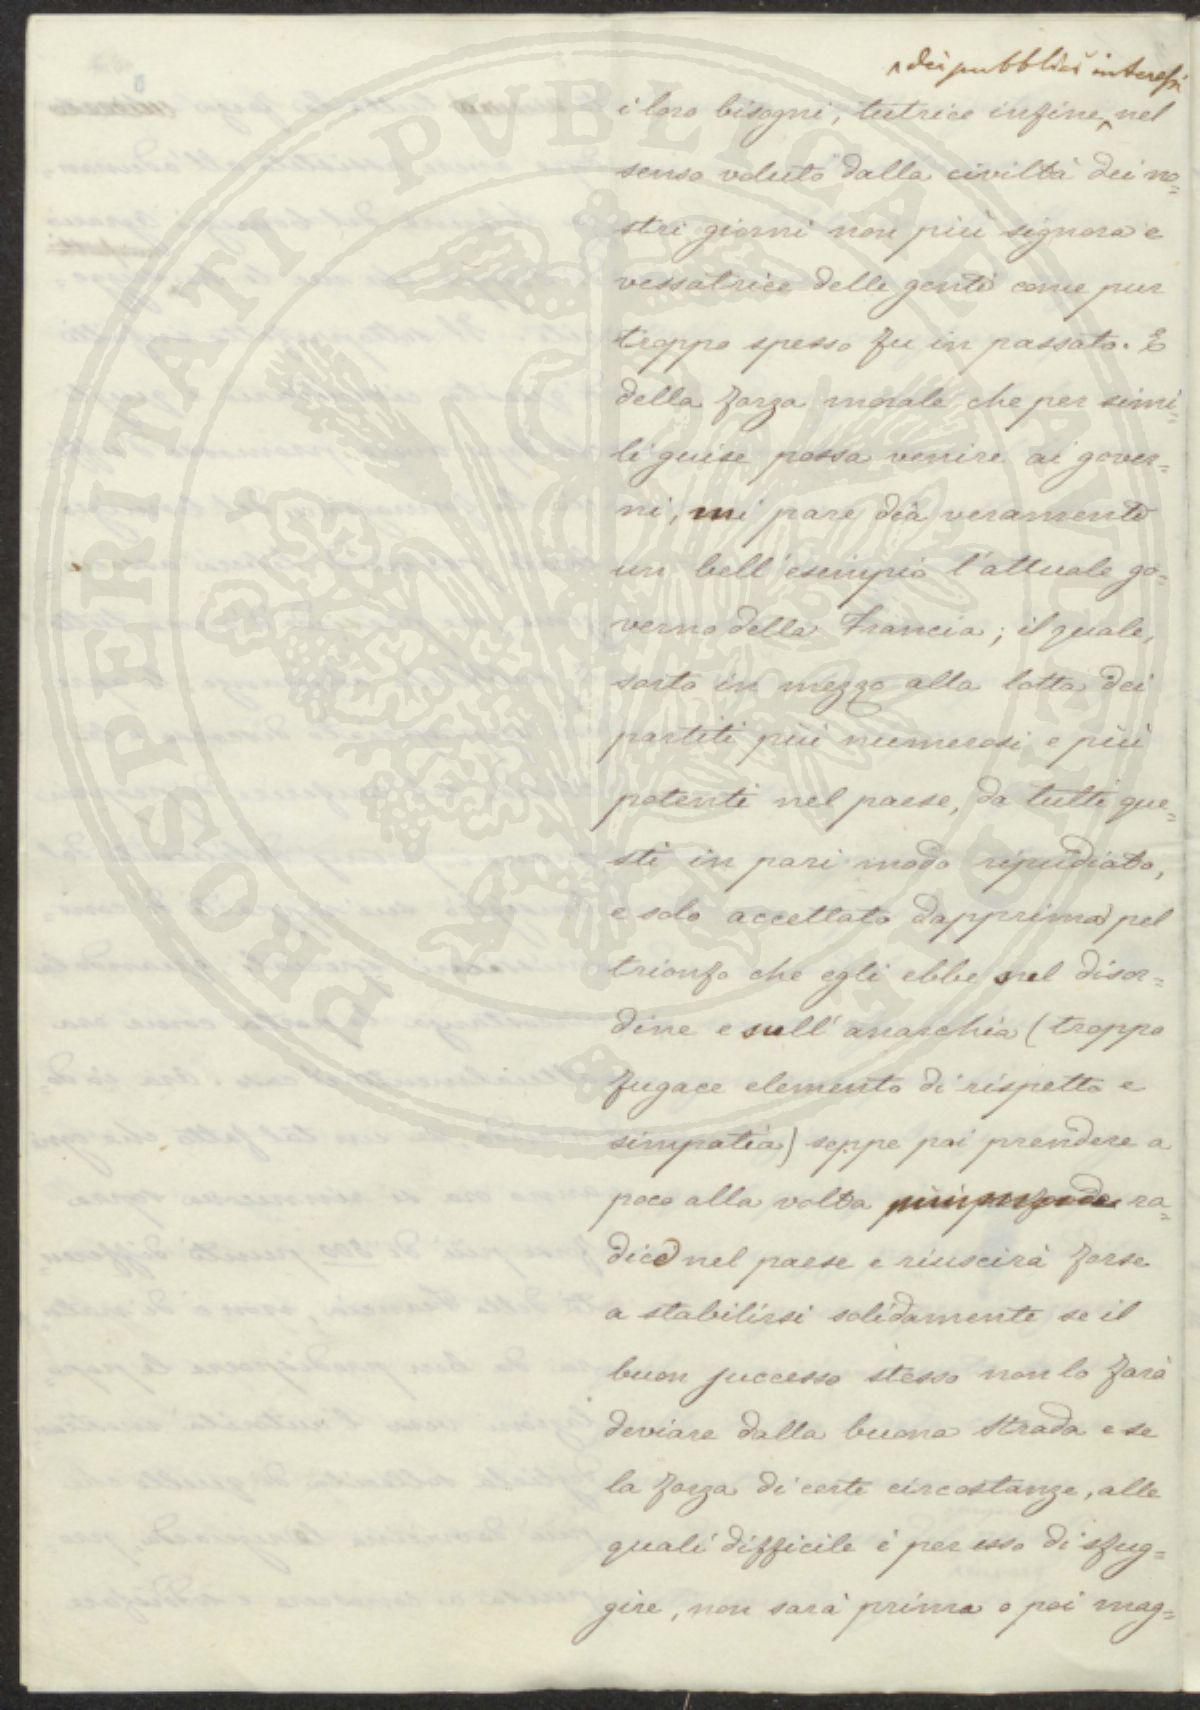 dei pubblici interessi
i loro bisogni, tutrice infine, nel
senso voluto dalla civiltà dei no=
stri giorni non più signora e
vessatrice delle genti come pur
troppo spesso fu in passato. E
della forza morale che per simi=
li guise possa venire ai gover=
ni, mi pare dia veramente
un bell'esempio l'attuale go=
verno della Francia; il quale,
sorto in mezzo alla lotta dei
partiti più numerosi e più
potenti nel paese, da tutti que=
sti in pari modo ripudiato,
e solo accettato dapprima pel
trionfo che egli ebbe sul disor=
dine e sull'anarchia (troppo
fugace elemento di rispetto e
simpatia) seppe poi prendere a
poco alla volta ra=
dici nel paese e riuscirà forse
a stabilirsi solidamente se il
buon successo stesso non lo farà
deviare dalla buona strada e se
la forza di certe circostanze, alle
quali difficile è per esso di sfug=
gire, non sarà prima o poi mag=
PROSPERITATI PUBLICAE AUGENDAE